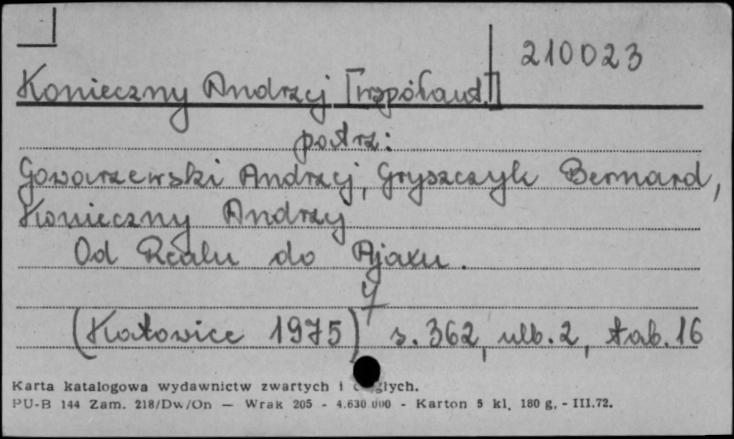 210023
Konieczny Andrzej [współaut.]
patrz:
Gowarzewski Andrzej, Gryszczyk Bernard,
Konieczny Andrzej
Od Realu do Ajaxu.
(Katowice 1975) s. 362, ulb. 2, tab. 16
Karta katalogowa wydawnictw zwartych i
PU-B 144 Zam. 218/Dw/On — Wrak 205 - 4.630 000 - Karton 5 kl. 180 g. - III.72.